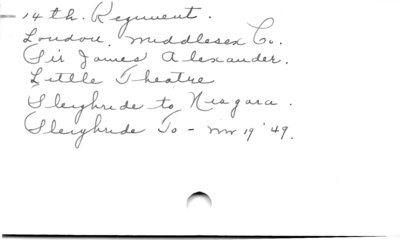 14th. Regiment.
London, Middlesex Co.
Sir James Alexander.
Little Theatre
Sleighride to Niagara.
Sleighride To - nm 19 '49.